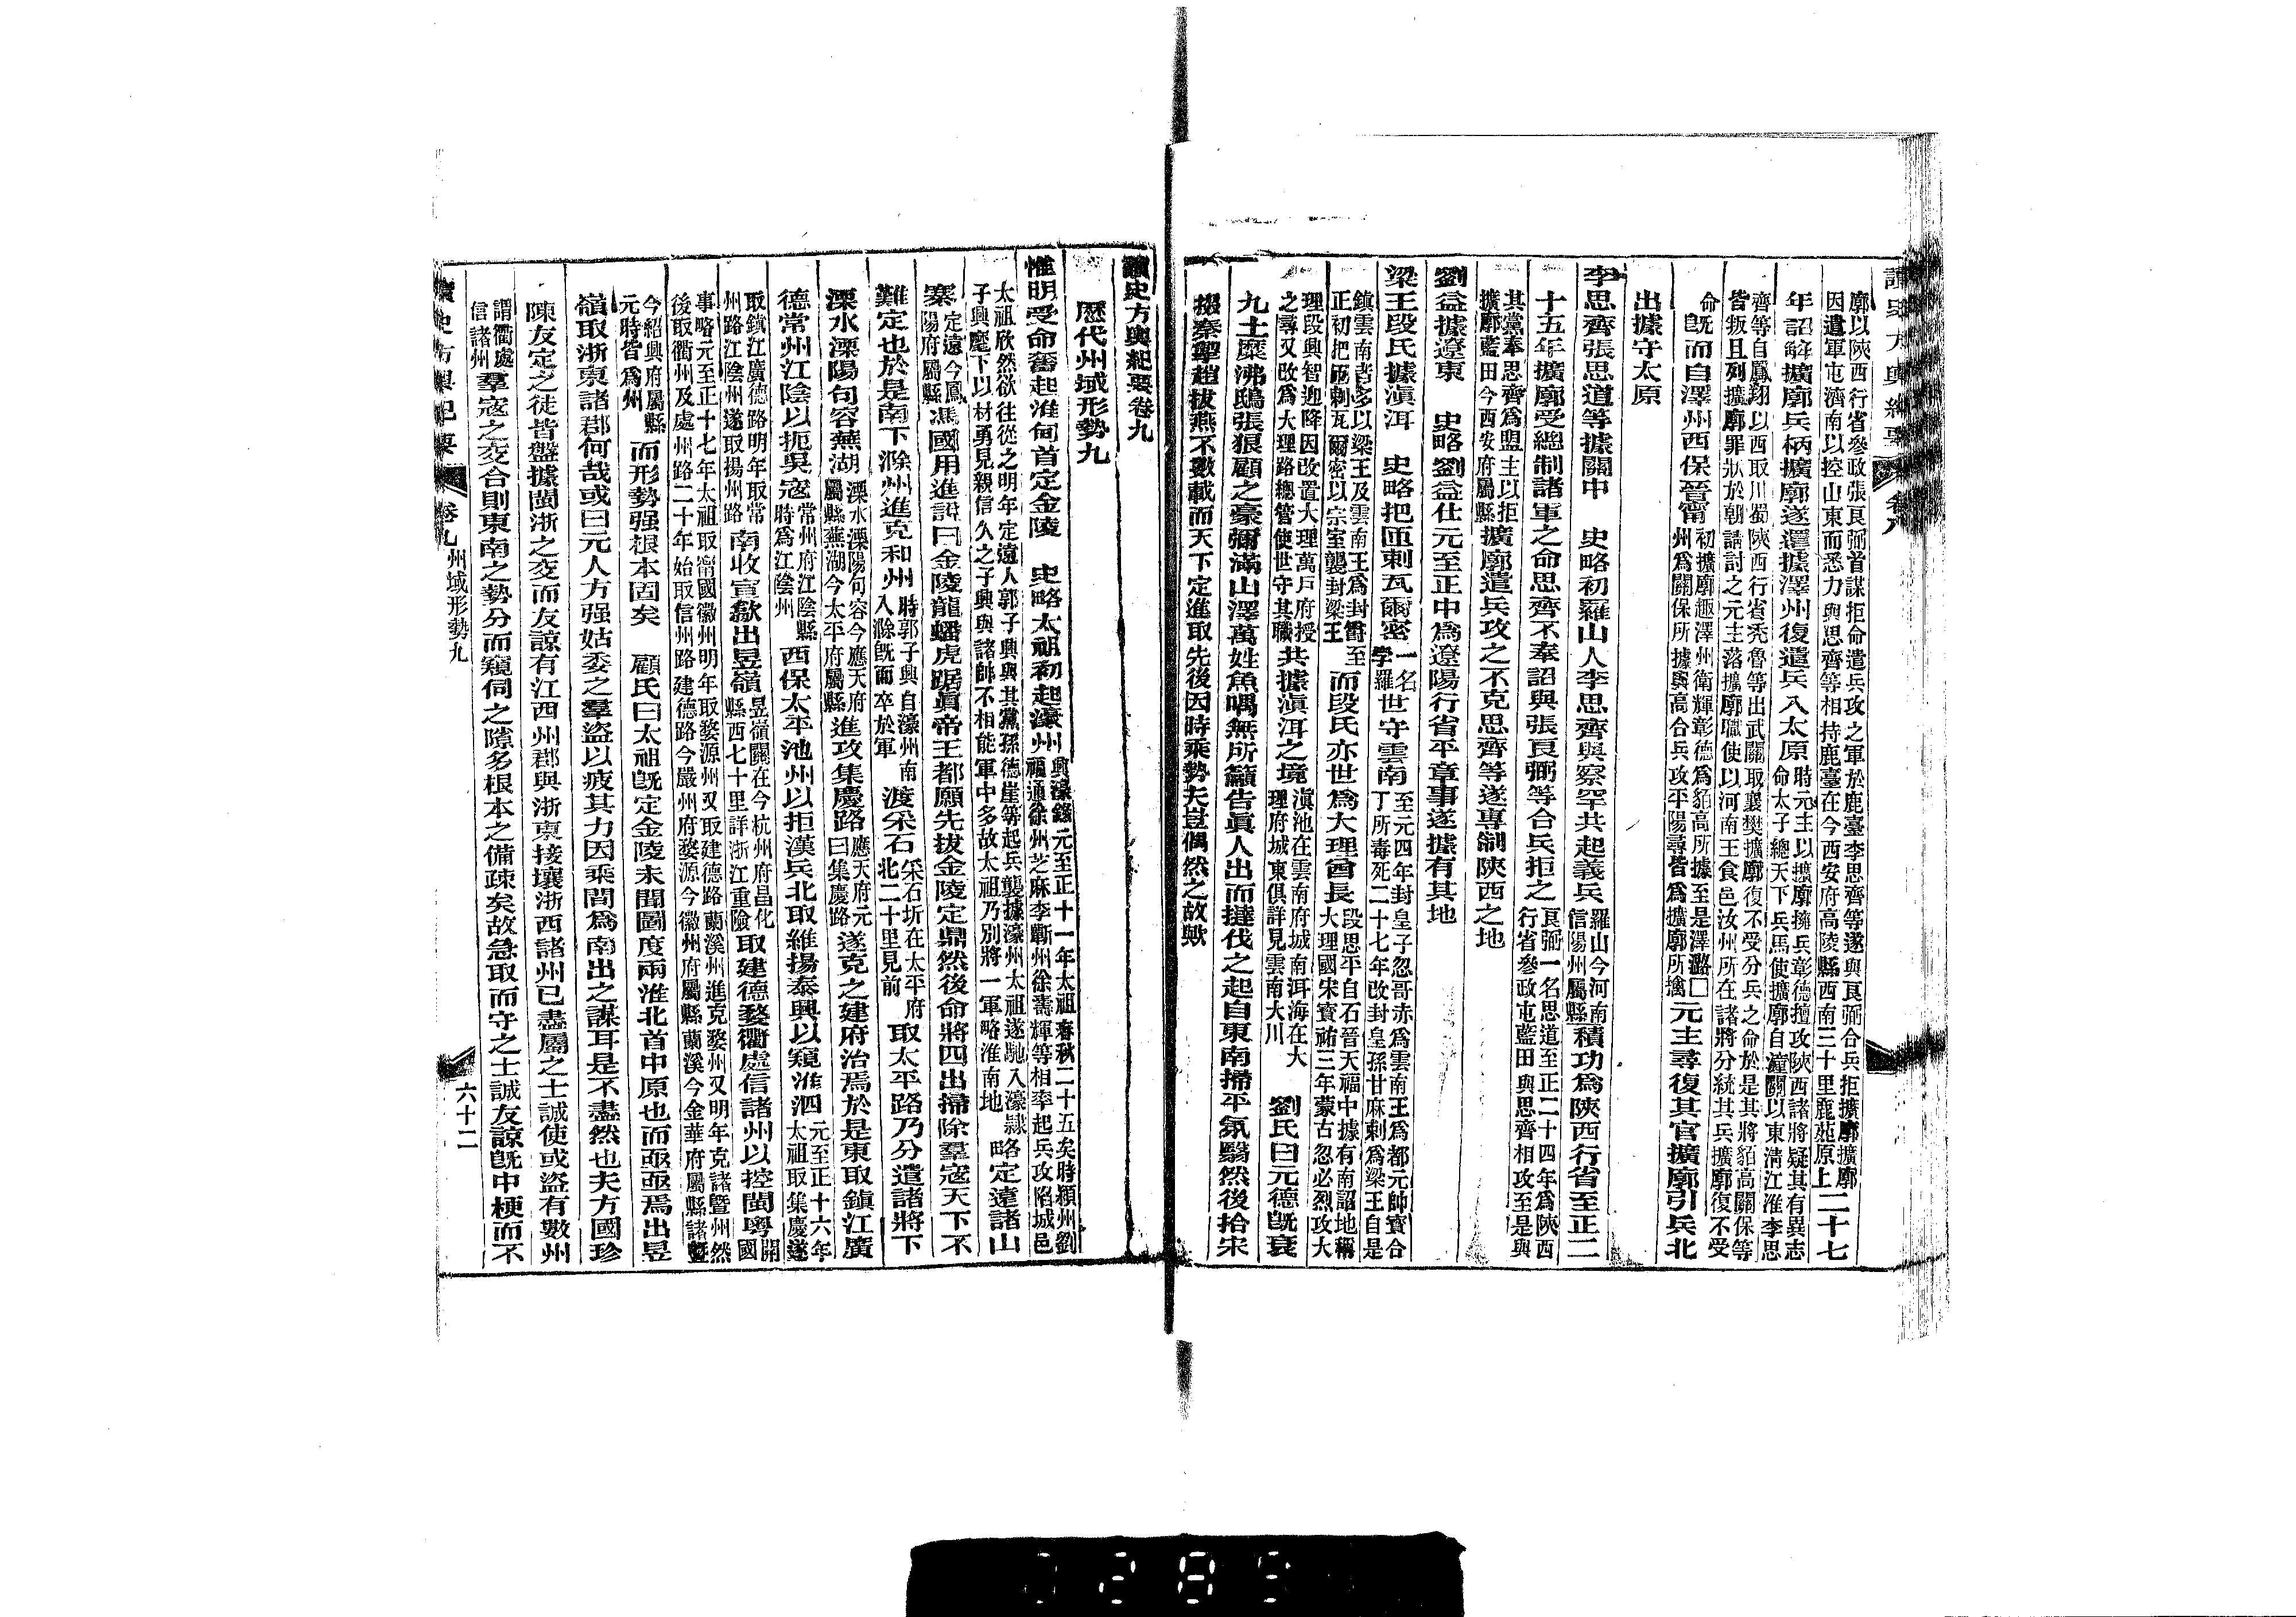 讀史方輿紀要 卷八
廓以陝西行省參政張良弼首謀拒命遣兵攻之軍於鹿臺李思齊等遂與良弼合兵拒擴廓擴廓
因遣軍屯濟南以控山東而悉力與思齊等相持鹿臺在今西安府高陵縣西南三十里鹿苑原上二十七
年詔解擴廓兵柄擴廓遂還據澤州復遣兵入太原時元主以擴廓擁兵彰德擅攻陝西諸將疑其有異志
命太子總天下兵馬使擴廓自潼關以東淸江淮李思
齊等自鳳翔以西取川蜀陝西行省禿魯等出武關取襄樊擴廓復不受分兵之命於是其將貊高關保等
皆叛且列擴廓罪狀於朝請討之元主落擴廓職使以河南王食邑汝州所在諸將分統其兵擴廓復不受
命旣而自澤州西保晉甯初擴廓趣澤州衛輝彰德爲貊高所據至是澤潞□
州爲關保所據與高合兵攻平陽尋皆爲擴廓所擒元主尋復其官擴廓引兵北
出據守太原
李思齊張思道等據關中 史略初羅山人李思齊與察罕共起義兵羅山今河南
信陽州屬縣積功爲陝西行省至正二
十五年擴廓受總制諸軍之命思齊不奉詔與張良弼等合兵拒之良弼一名思道至正二十四年爲陝西
行省參政屯藍田與思齊相攻至是與
其黨奉思齊爲盟主以拒
擴廓藍田今西安府屬縣擴廓遣兵攻之不克思齊等遂專制陝西之地
劉益據遼東 史略劉益仕元至正中爲遼陽行省平章事遂據有其地
梁王段氏據滇洱 史略把匝剌瓦爾密一名
孛羅世守雲南至元四年封皇子忽哥赤爲雲南王爲都元帥寶合
丁所毒死二十七年改封皇孫甘麻剌爲梁王自是
鎭雲南者多以梁王及雲南王爲封爵至
正初把匝剌瓦爾密以宗室襲封梁王而段氏亦世爲大理酋長段思平自石晉天福中據有南詔地稱
大理國宋寶祐三年蒙古忽必烈攻大
理段興智迎降因改置大理萬戶府授
之尋又改爲大理路總管使世守其職共據滇洱之境滇池在雲南府城南洱海在大
理府城東俱詳見雲南大川 劉氏曰元德旣衰
九土糜沸鴟張狼顧之豪彌滿山澤萬姓魚喁無所籲告眞人出而撻伐之起自東南掃平氛翳然後拾宋
掇秦擥趙拔燕不數載而天下定進取先後因時乘勢夫豈偶然之故歟
讀史方輿紀要卷九
歷代州域形勢九
惟明受命奮起淮甸首定金陵 史略太祖初起濠州興濠錄元至正十一年太祖春秋二十五矣時潁州劉
福通徐州芝麻李蘄州徐壽輝等相率起兵攻陷城邑
太祖欣然欲往從之明年定遠人郭子興與其黨孫德崖等起兵襲據濠州太祖遂馳入濠隸
子興麾下以材勇見親信久之子興與諸帥不相能軍中多故太祖乃別將一軍略淮南地略定遠諸山
寨定遠今鳳
陽府屬縣馮國用進說曰金陵龍蟠虎踞眞帝王都願先拔金陵定鼎然後命將四出掃除羣寇天下不
難定也於是南下滁州進克和州時郭子興自濠州南
入滁旣而卒於軍渡采石采石圻在太平府
北二十里見前取太平路乃分遣諸將下
溧水溧陽句容蕪湖溧水溧陽句容今應天府
屬縣蕪湖今太平府屬縣進攻集慶路應天府元
曰集慶路遂克之建府治焉於是東取鎭江廣
德常州江陰以扼吳寇常州府江陰縣
時爲江陰州西保太平池州以拒漢兵北取維揚泰興以窺淮泗元至正十六年
太祖取集慶遂
取鎭江廣德路明年取常
州路江陰州遂取揚州路南收宣歙出昱嶺昱嶺關在今杭州府昌化
縣西七十里詳浙江重險取建德婺衢處信諸州以控閩粵開
國
事略元至正十七年太祖取甯國徽州明年取婺源州又取建德路蘭溪州進克婺州又明年克諸曁州然
後取衢州及處州路二十年始取信州路建德路今嚴州府婺源今徽州府屬縣蘭溪今金華府屬縣諸曁
今紹興府屬縣
元時皆爲州而形勢强根本固矣 顧氏曰太祖旣定金陵未聞圖度兩淮北首中原也而亟亟焉出昱
嶺取浙東諸郡何哉或曰元人方强姑委之羣盜以疲其力因乘間爲南出之謀耳是不盡然也夫方國珍
陳友定之徒皆盤據閩浙之交而友諒有江西州郡與浙東接壤浙西諸州已盡屬之士誠使或盜有數州
謂衢處
信諸州羣寇之交合則東南之勢分而窺伺之隙多根本之備疎矣故急取而守之士誠友諒旣中梗而不
讀史方輿紀要 卷九 州域形勢九 六十二